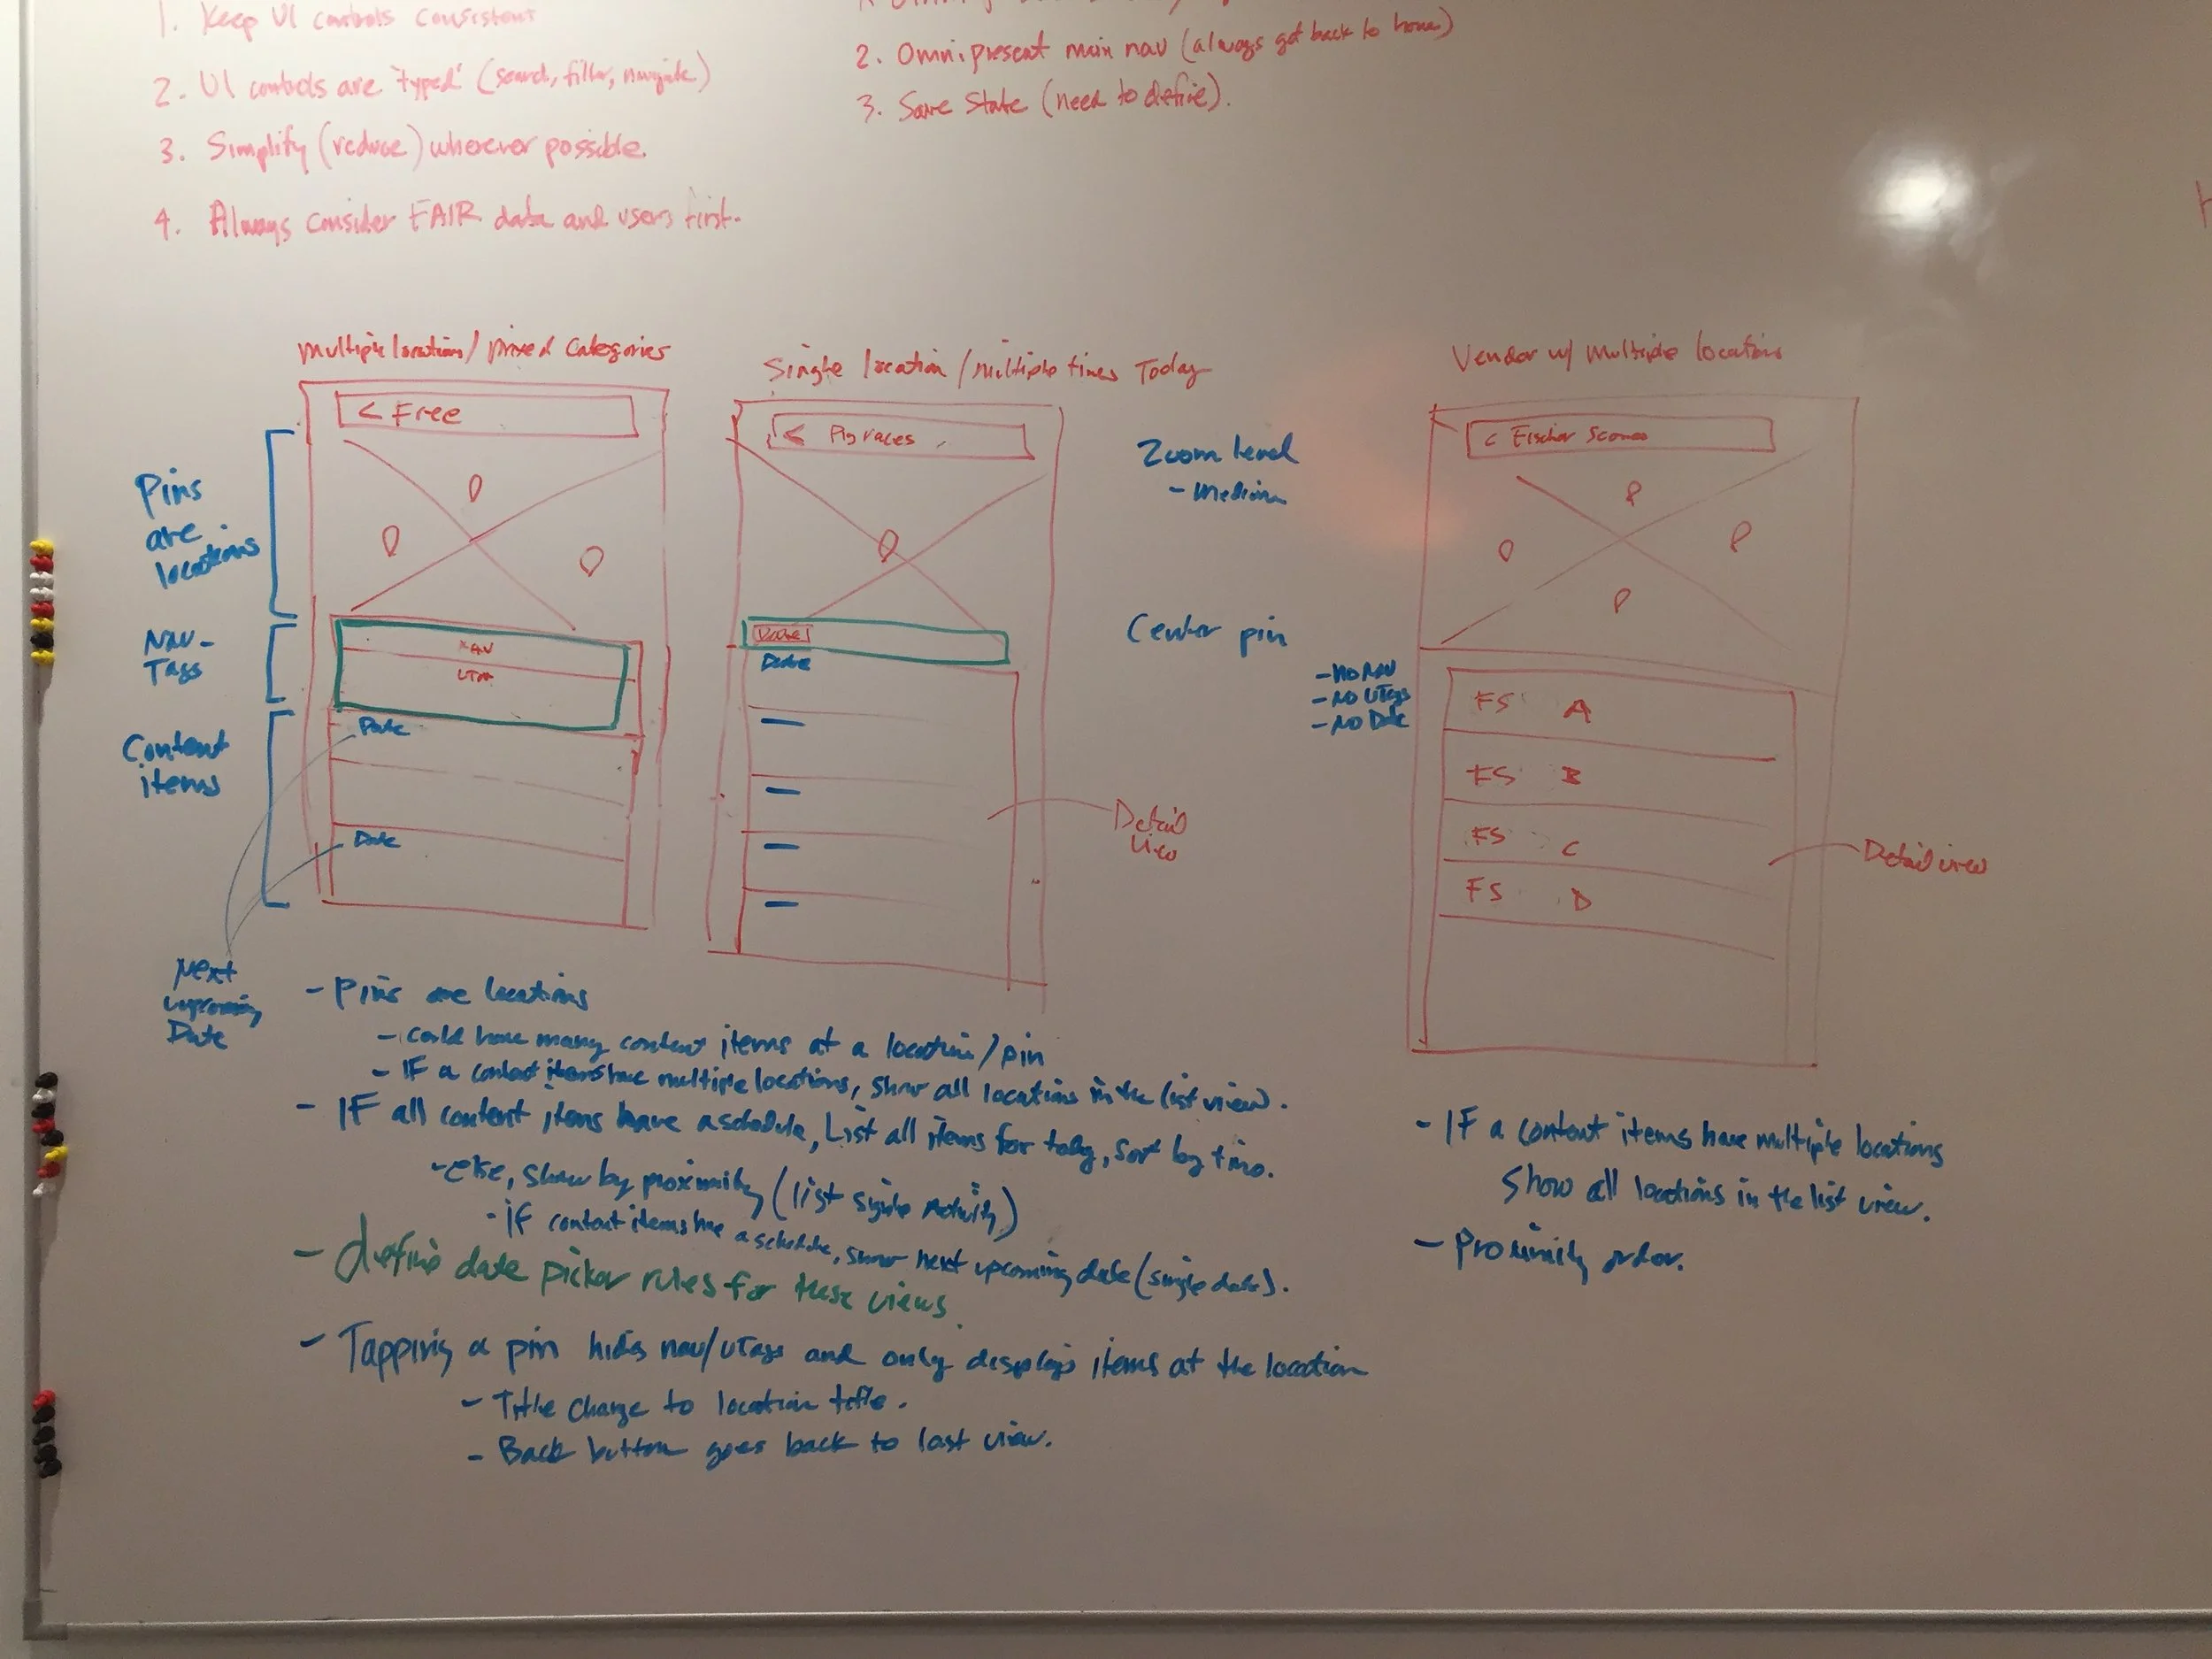 1. Keep UI controls consistent
2. UI controls are "typed" (search, filter, navigate)
3. Simplify (reduce) wherever possible.
4. Always consider FAIR data and users first.
2. Omnipresent main nav (always get back to home)
3. Save State (need to define).
Multiple locations / mixed categories
< Free
Pins
are
locations
NAV
Nav -
Tags
Date
Content
items
Date
Next
upcoming
Date
Single location / multiple times Today
< Pig races
Date
Detail
view
Zoom level
- Medium
Center pin
Vendor w/ Multiple locations
< Fischer Scones
- No Nav
- No UTags
- No Date
FS A
FS B
FS C
FS D
Detail view
- Pins are locations
- Could have many content items at a location/pin
- IF a content items have multiple locations, show all locations in the list view).
- IF all content items have a schedule, List all items for today, sort by time.
- else, show by proximity (list single Activity)
- if content items have a schedule, show next upcoming date (single date).
- define date picker rules for these views.
- Tapping a pin hides nav/UTags and only displays items at the location
- Title change to location title.
- Back button goes back to last view.
- IF a content items have multiple locations
Show all locations in the list view.
- Proximity order.